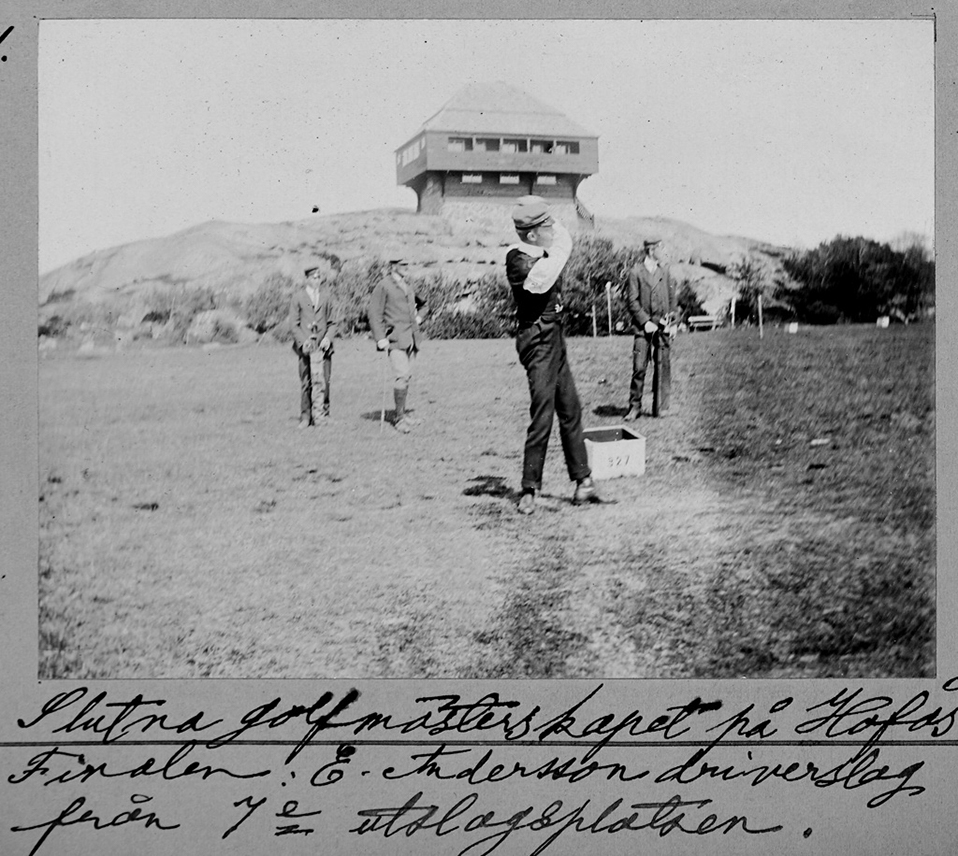 927
Slutna golfmästerskapet på Hofås
Finalen: E. Andersson driverslag
från 7e utslagsplatsen.